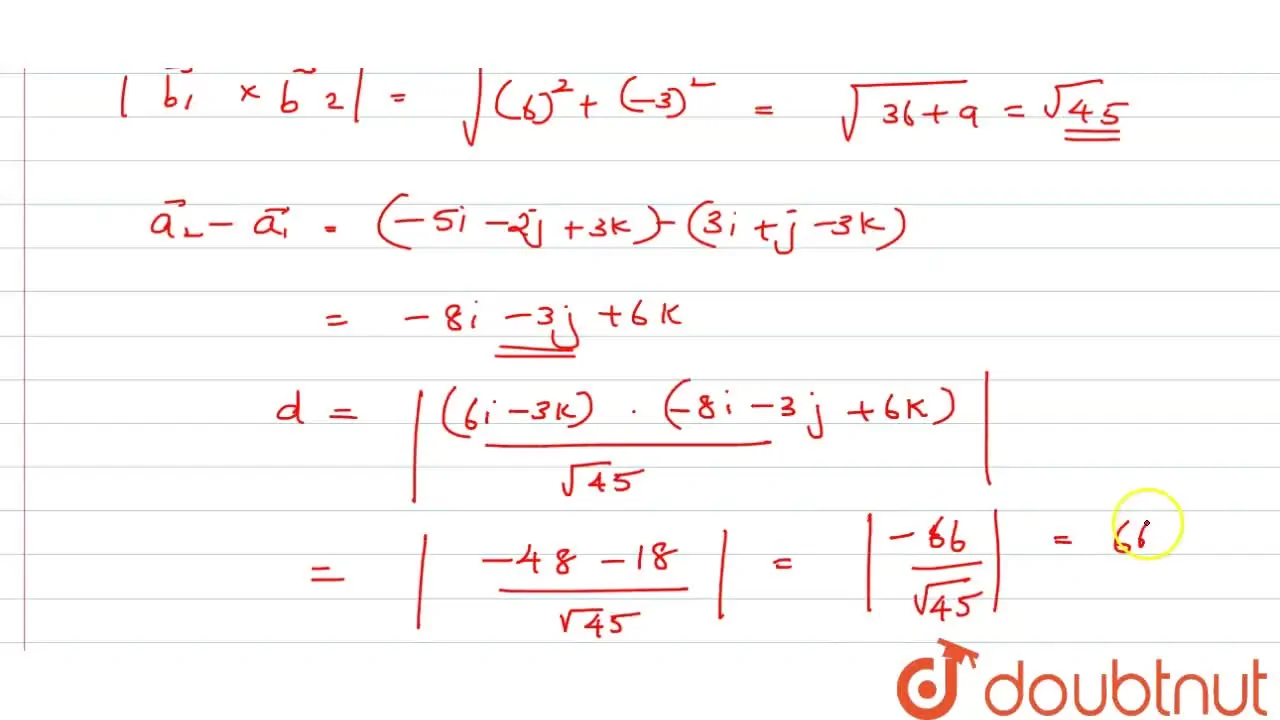 | b⃗₁ × b⃗ ₂| = √(6)² + (-3)² = √36+9 = √45
a⃗₂ - a⃗₁ = (-5i - 2j + 3k) - (3i + j - 3k)
= -8i - 3j + 6k
d = | (6i - 3k) . (-8i - 3j + 6k) / √45 |
= | -48 - 18 / √45 | = | -66 / √45 | = 66
doubtnut